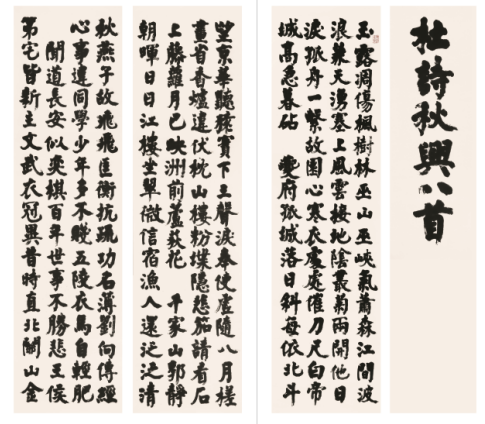 杜詩秋興八首
玉露凋傷楓樹林巫山巫峽氣蕭森江間波
浪兼天湧塞上風雲接地陰叢菊兩開他日
淚孤舟一繫故園心寒衣處處催刀尺白帝
城高急暮砧 夔府孤城落日斜每依北斗
望京華聽猿實下三聲淚奉使虛隨八月槎
畫省香爐違伏枕山樓粉堞隱悲笳請看石
上藤蘿月已映洲前蘆荻花 千家山郭靜
朝暉日日江樓坐翠微信宿漁人還泛泛清
秋燕子故飛飛匡衡抗疏功名薄劉向傳經
心事違同學少年多不賤五陵衣馬自輕肥
聞道長安似奕棋百年世事不勝悲王侯
第宅皆新主文武衣冠異昔時直北關山金